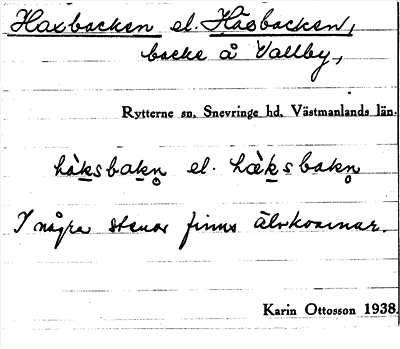 Haxbacken el. Häxbacken,
backe å Vallby,
Rytterne sn. Snevringe hd. Västmanlands län.
hàksbakn̥ el. hæ̀ksbakn̥
I några stenar finns älvkvarnar.
Karin Ottosson 1938.